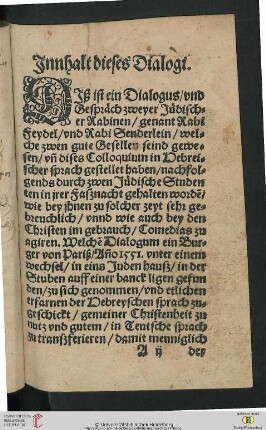 Innhalt dieses Dialogi.
DIß ist ein Dialogus/ vnd
Gespräch zweyer Jüdisch-
er Rabinen/ genant Rabi
Feydel/ vnd Rabi Senderlein/ wel-
che zwen gute Gesellen seind gewe-
sen/ vñ dises Colloquium in Hebrei-
scher sprach gestellet haben/ nachfol-
gends durch zwen Jüdische Studen
ten in jrer Faßnacht gehalten wordē/
wie bey jhnen zu solcher zeyt sehr ge-
breuchlich/ vnnd wie auch bey den
Christen im gebrauch/ Comedias zu
agiren. Welchē Dialogum ein Bur
ger von Pariß/ Año 1551. vnter einem
wechsel/ in eins Juden hauß/ in der
Stuben auff einer banck ligen gefun
den/ zu sich genommen/ vnd etlichen
erfarnen der Hebreyschen sprach zu-
geschickt/ gemeiner Christenheit zu
nutz vnd gutem/ in Teutsche sprach
zu transzferieren/ damit menniglich
A ij der
UNIVERSITÄTS-
BIBLIOTHEK
HEIDELBERG
© Universitätsbibliothek Heidelberg